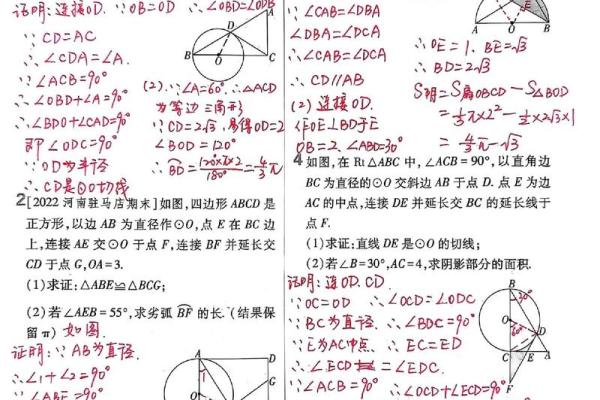 证明:连接OD. ∵OB=OD ∴∠OBD=∠ODB
∵CD=AC
∴∠CDA=∠A.
∵∠ACB=90°
∴∠OBD+∠A=90°
∴∠BDO+∠CAD=90°
即∠ODC=90°
∵OD为半径
∴CD是⊙O切线
A
D
B
O
C
(2).∵∠A=60° ∴△ACD
为等边三角形
∵CD=2√3,易得OD=2
∠BOD=120°
∴BD=120×π×2/180°=4/3π
2[2022河南驻马店期末]如图,四边形ABCD是
正方形,以边AB为直径作⊙O,点E在BC边
上,连接AE交⊙O于点F,连接BF并延长交
CD于点G,OA=3.
(1)求证:△ABE≌△BCG;
(2)若∠AEB=55°,求劣弧BF的长.(结果保
留π) 如图
证明:∵AB为直径
∴∠1+∠2=90°
∠ABE=90°
A
D
1
G
O
∵∠CAB=∠DBA
∠DBA=∠DCA
∴∠CAB=∠DCA
∴CD//AB
(2)连接OD.
作OE⊥BD于E
OB=2,∠ABD=30°
E
A
O
B
∴OE=1,BE=√3
∴BD=2√3
S阴=S扇OBCD-S△BOD
=1/3π×2²-1/2×2√3×1
=4/3π-√3
4如图,在Rt△ABC中,∠ACB=90°,以直角边
BC为直径的⊙O交斜边AB于点D.点E为边
AC的中点,连接DE并延长交BC的延长线于
点F.
(1)求证:直线DE是⊙O的切线;
(2)若∠B=30°,AC=4,求阴影部分的面积.
证明:连OD.CD.
∵OC=OD ∴∠OCD=∠ODC
∵BC为直径.∴∠BDC=90°
∵E为AC中点 ∴EC=ED
∴∠ECD=∠EDC.
∵∠ACB=90° ∴∠OCD+∠ECD=90°
B
30°
O
60°
D
C
E
A
F